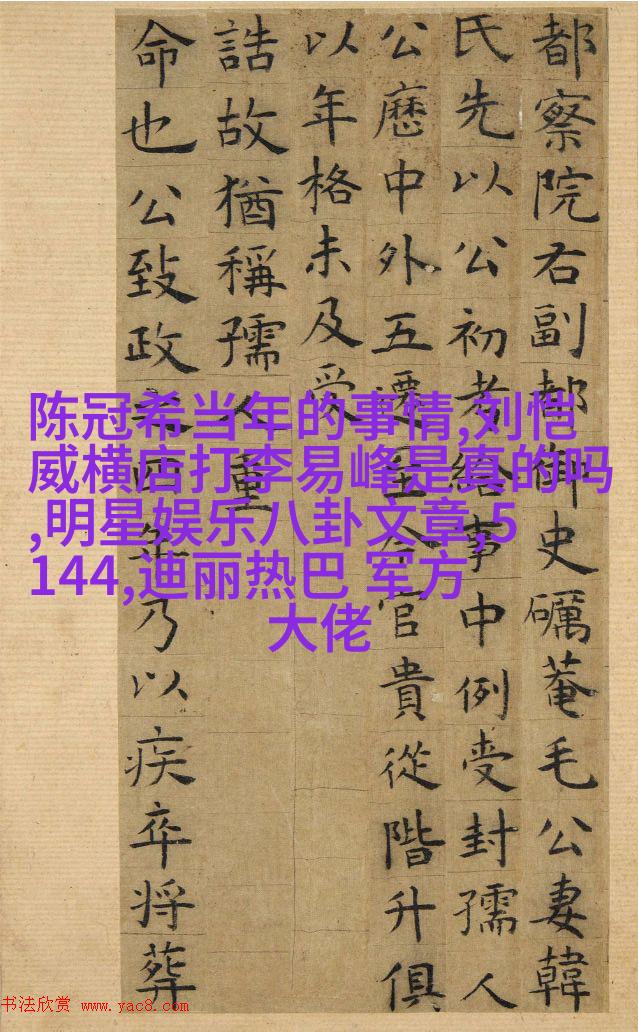 都察院右副都御史礪菴毛公妻韓
氏先以公初考給事中例受封孺人
公歷中外五遷至今官貴從階升俱
以年格未及受
誥故猶稱孺人重
命也公致政之年乃以疾卒将葬
陈冠希当年的事情,刘恺
威横店打李易峰是真的吗
,明星娱乐八卦文章,5
144,迪丽热巴 军方
大佬
书法欣赏 www.yac8.com